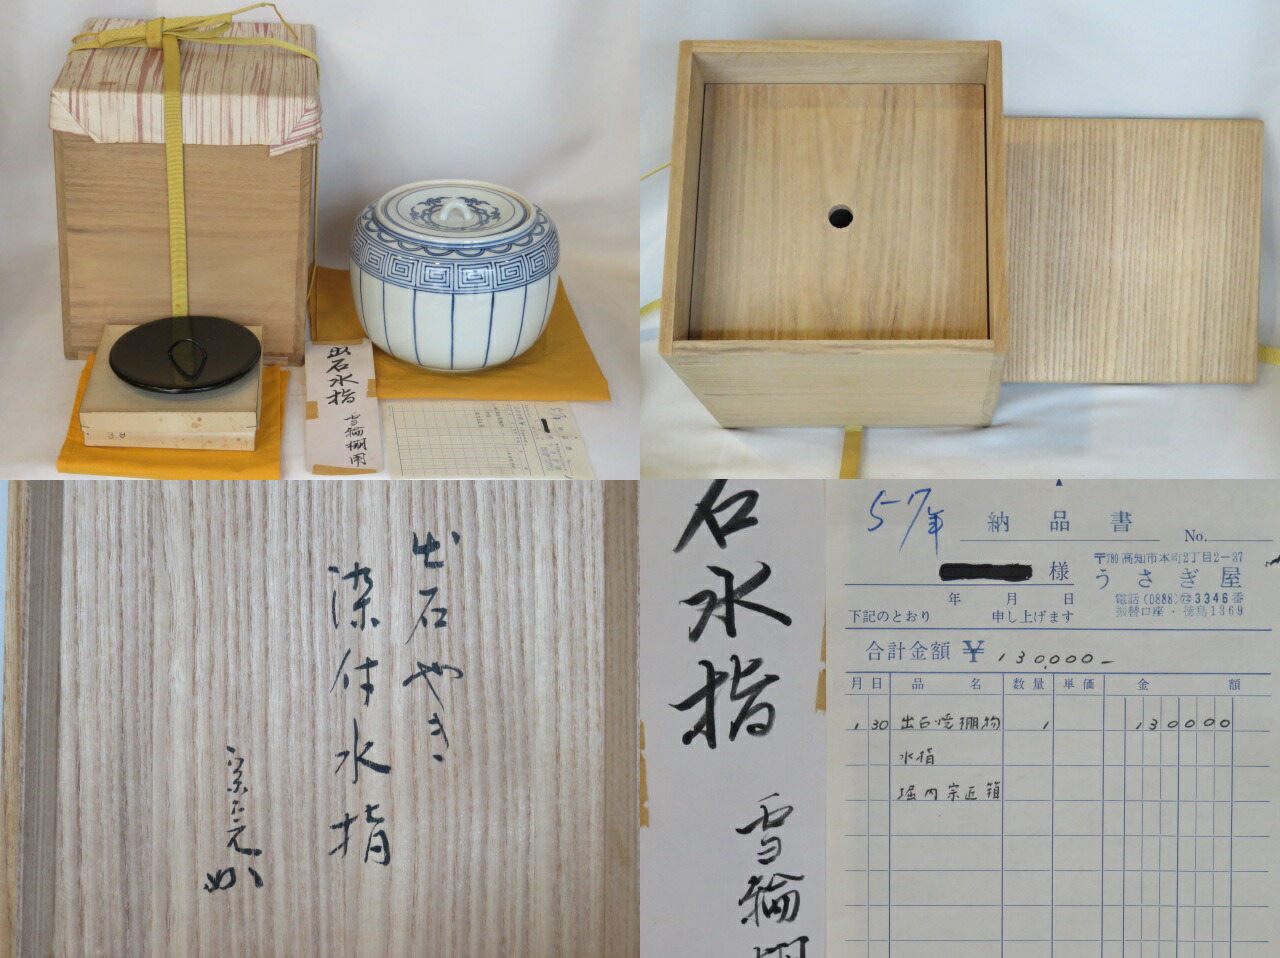 出石水指
雪輪棚用
出石やき
染付水指
石水指
雪輪棚
57年
納品書
No.
〒780 高知市本町2丁目2-37
うさぎ屋
様
電話(0888)㉒3346番
振替口座・徳島1369
年 月 日
下記のとおり 申し上げます
合計金額 ¥130,000-
月 日 品 名 数量 単価 金 額
1 30 出石焼棚物 1 130000
水指
堀内宗匠箱